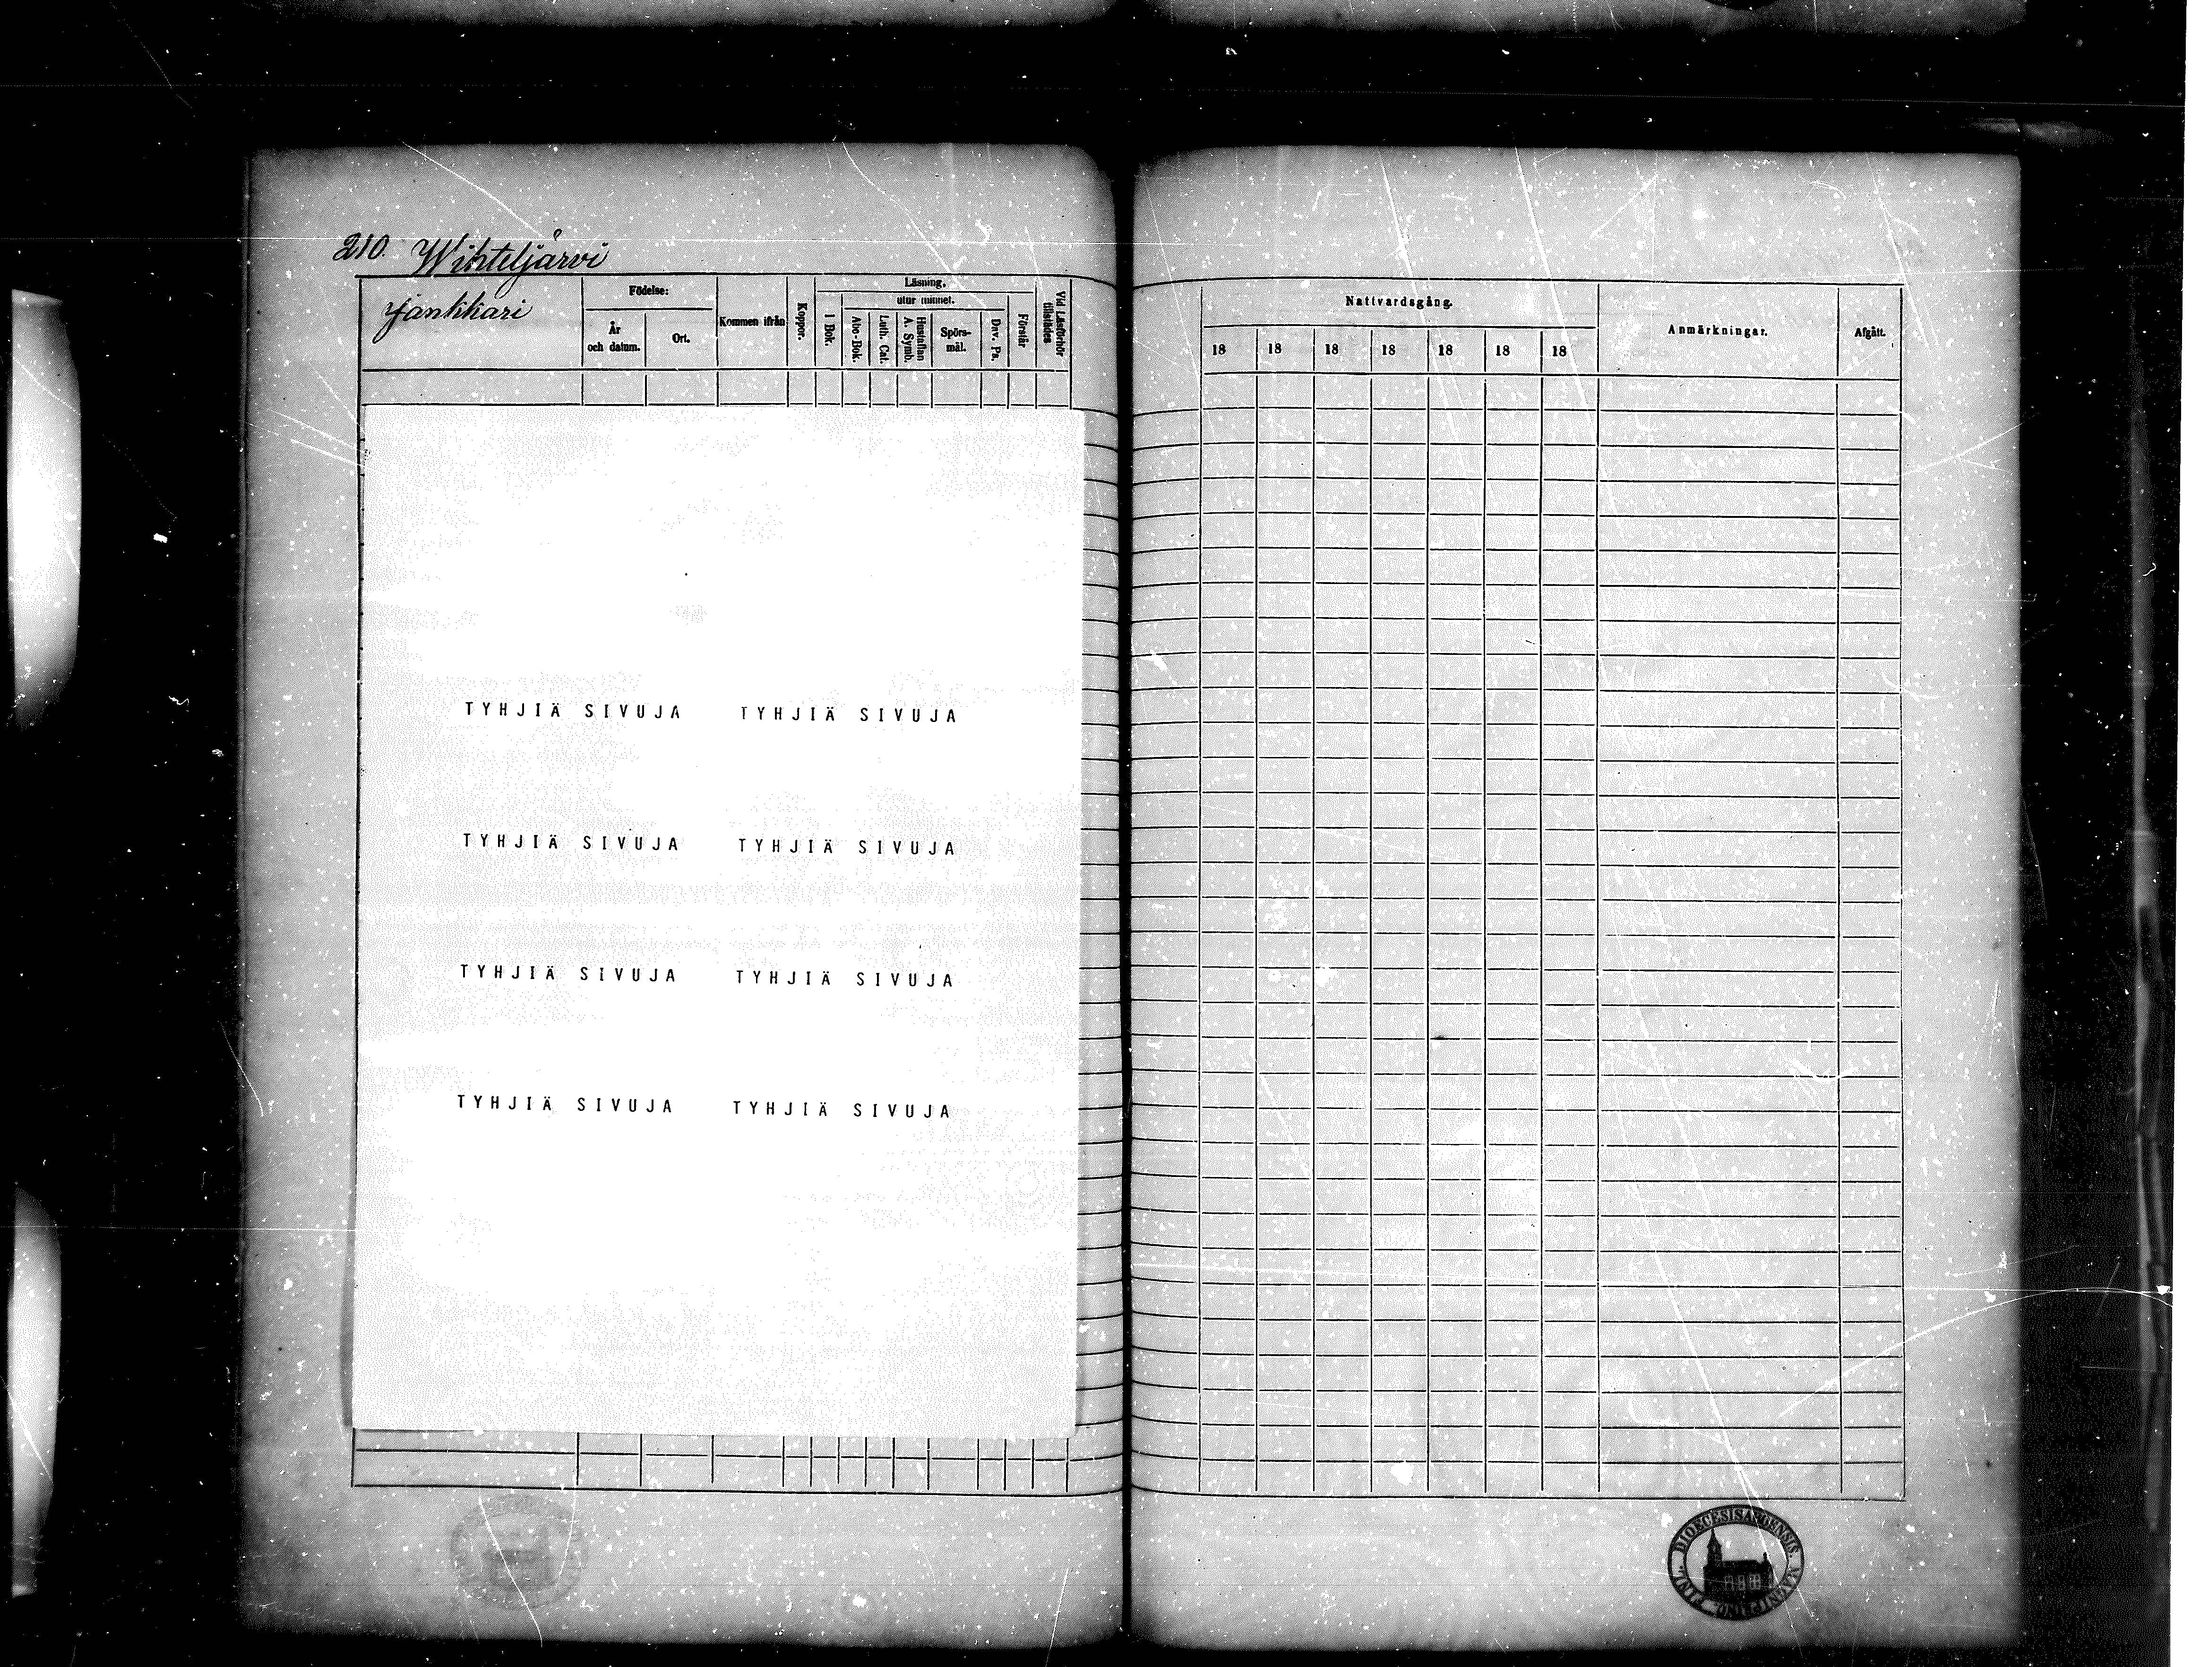 210. Wihteljärvi
Jankkari
Födelse:
År och datum.
Ort.
Kommen ifrån
Koppor.
Läsning.
I Bok.
utur minnet.
Abc-Bok.
Luth. Cat.
Hustaflan A. Symb.
Spörsmål.
Dav. Ps.
Förstår
Vid Läsförhör tillstädes
Nattvardsgång.
18 18 18 18 18 18 18
Anmärkningar.
Afgått.
TYHJIÄ SIVUJA TYHJIÄ SIVUJA
TYHJIÄ SIVUJA TYHJIÄ SIVUJA
TYHJIÄ SIVUJA TYHJIÄ SIVUJA
TYHJIÄ SIVUJA TYHJIÄ SIVUJA